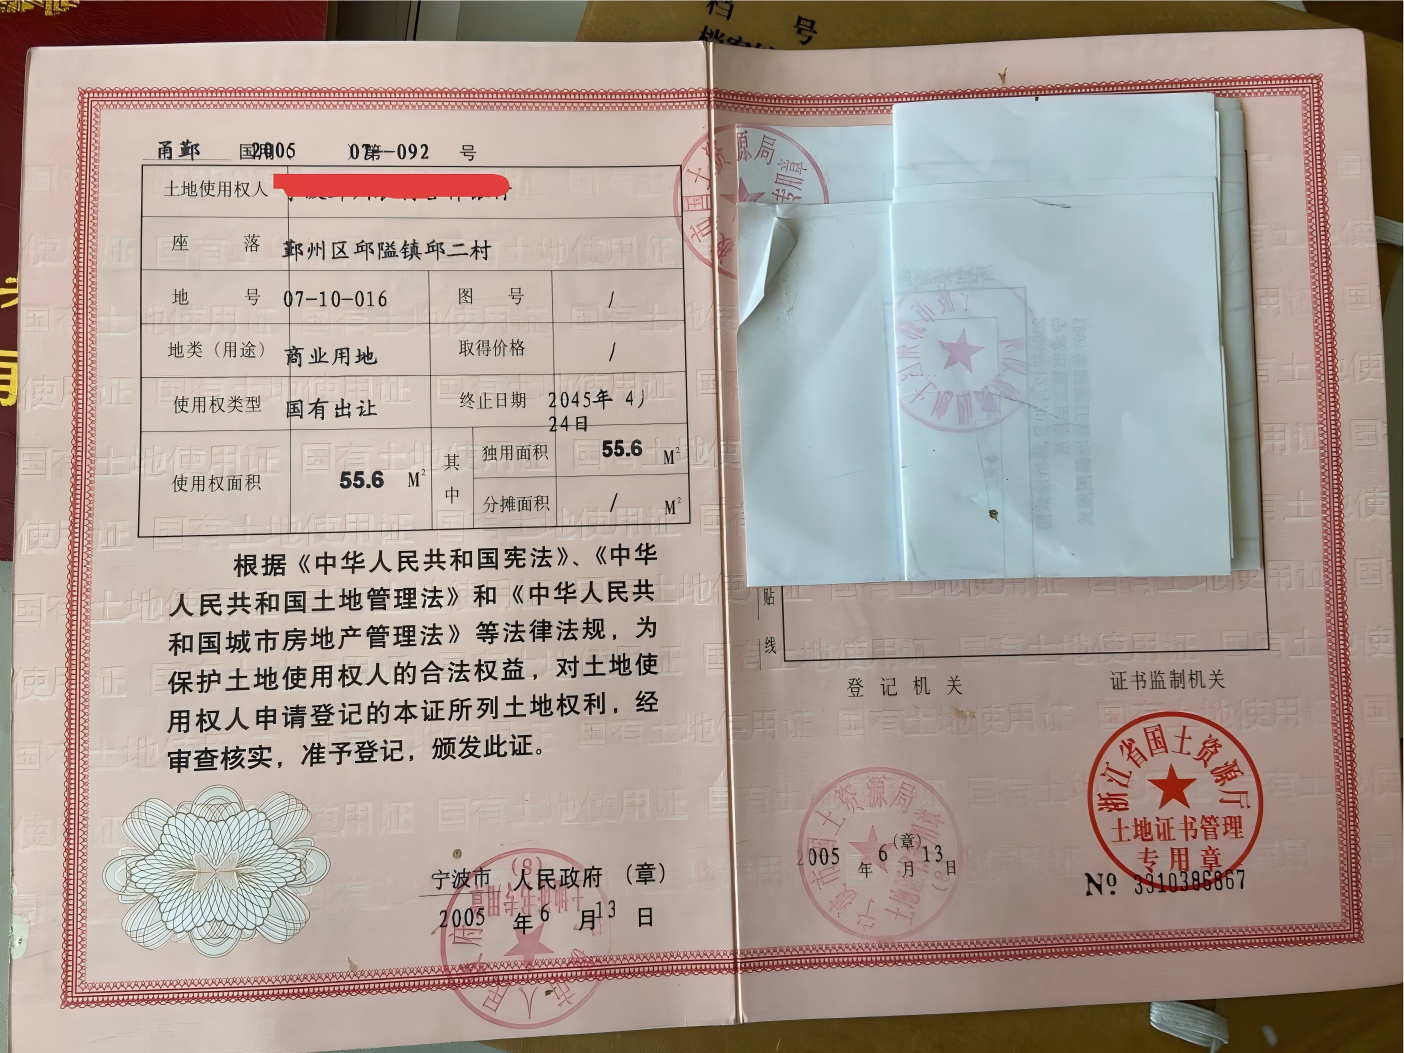 档 号
甬鄞 国用 2005 )第 07-092 号
土地使用权人
座 落 鄞州区邱隘镇邱二村
地 号 07-10-016 图 号 /
地类（用途） 商业用地 取得价格 /
使用权类型 国有出让 终止日期 2045年 4
24日
使用权面积 55.6 M² 其中 独用面积 55.6 M²
分摊面积 / M²
根据《中华人民共和国宪法》、《中华
人民共和国土地管理法》和《中华人民共
和国城市房地产管理法》等法律法规，为
保护土地使用权人的合法权益，对土地使
用权人申请登记的本证所列土地权利，经
审查核实，准予登记，颁发此证。
宁波市 人民政府 （章）
2005 年 6 月 13 日
贴
线
登记机关
（章）
2005 年 6 月 13 日
证书监制机关
浙江省国土资源厅
土地证书管理
专用章
Nº 3310386867